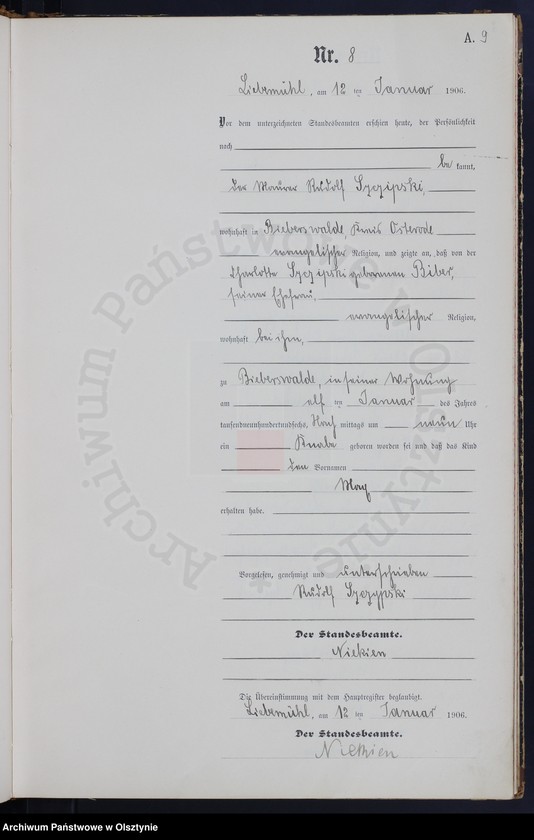 A. 9
Nr. 8
Liebemühl, am 12 ten Januar 1906.
Vor dem unterzeichneten Standesbeamten erschien heute, der Persönlichkeit
nach
be kannt,
der Maurer Rudolf Szczipski,
wohnhaft in Bieberswalde, Kreis Osterode
evangelischer Religion, und zeigte an, daß von der
Charlotte Szczipski geborenen Biber,
seiner Ehefrau,
evangelischer Religion,
wohnhaft bei ihm,
zu Bieberswalde, in seiner Wohnung
am elf ten Januar des Jahres
tausendneunhundertundsechs, Nach mittags um neun Uhr
ein Knabe geboren worden sei und daß das Kind
den Vornamen
Max
erhalten habe.
Vorgelesen, genehmigt und unterschrieben
Rudolf Szczypski
Der Standesbeamte.
Niekien
Die Übereinstimmung mit dem Hauptregister beglaubigt.
Liebemühl, am 12 ten Januar 1906.
Der Standesbeamte.
Niekien
Archiwum Państwowe w Olsztynie *
Archiwum Państwowe w Olsztynie